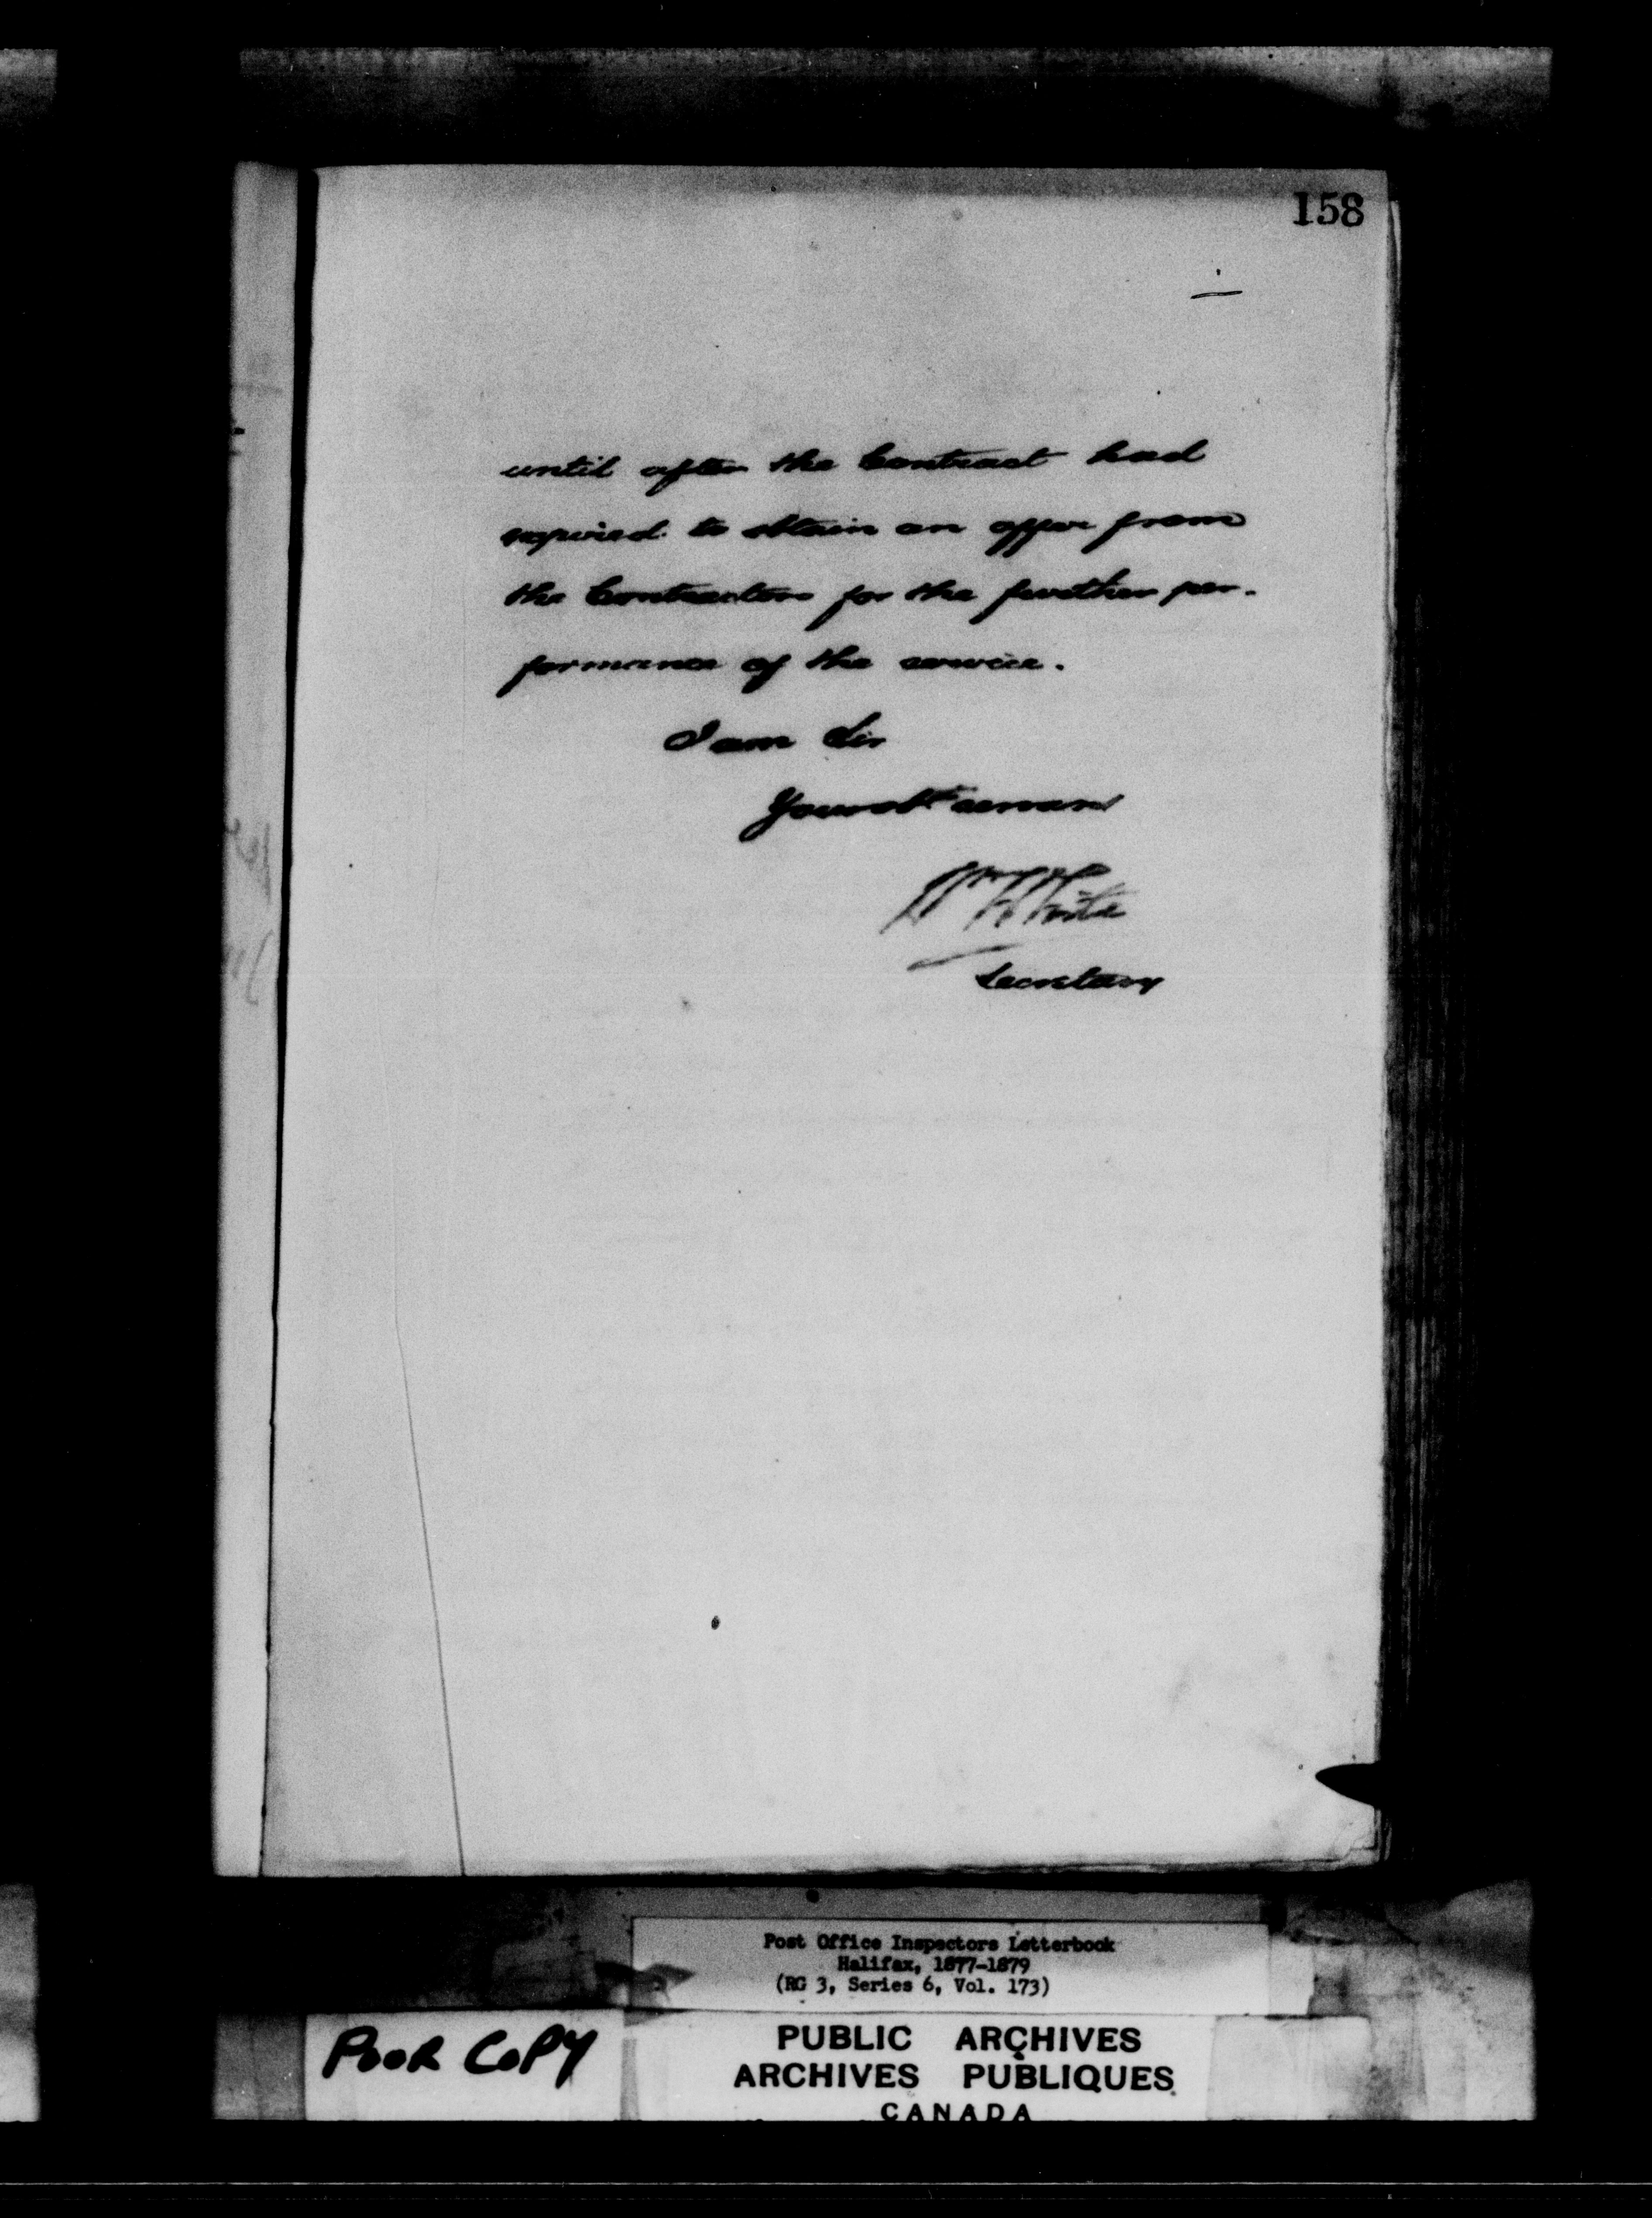 158
until after the Contract had
expired to obtain an offer from
the Contractors for the further per-
formance of the service.
I am Sir
Your obt servant
Wm White
Secretary
Post Office Inspectors Letterbook
Halifax, 1877-1879
(RG 3, Series 6, Vol. 173)
POOR COPY
PUBLIC ARCHIVES
ARCHIVES PUBLIQUES
CANADA